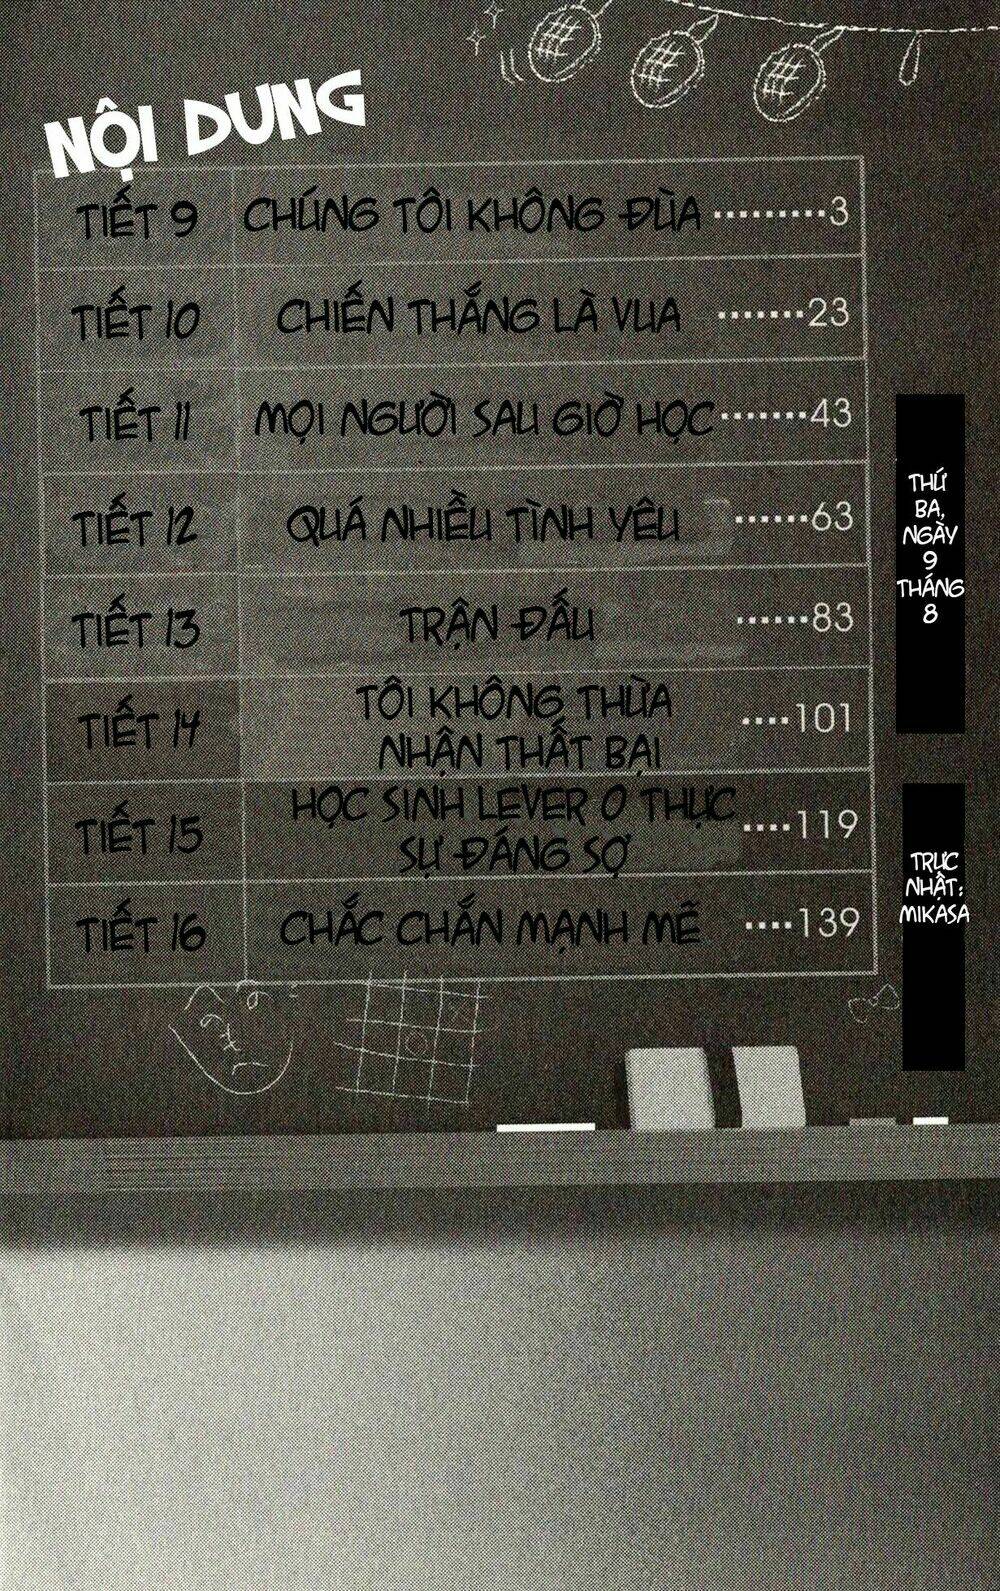 NỘI DUNG
TIẾT 9 CHÚNG TÔI KHÔNG ĐÙA ········· 3
TIẾT 10 CHIẾN THẮNG LÀ VUA ······· 23
TIẾT 11 MỌI NGƯỜI SAU GIỜ HỌC ······· 43
TIẾT 12 QUÁ NHIỀU TÌNH YÊU ······ 63
TIẾT 13 TRẬN ĐẤU ······ 83
TIẾT 14 TÔI KHÔNG THỪA
NHẬN THẤT BẠI ···· 101
TIẾT 15 HỌC SINH LEVER 0 THỰC
SỰ ĐÁNG SỢ ···· 119
TIẾT 16 CHẮC CHẮN MẠNH MẼ ···· 139
THỨ
BA,
NGÀY
9
THÁNG
8
TRỰC
NHẬT:
MIKASA